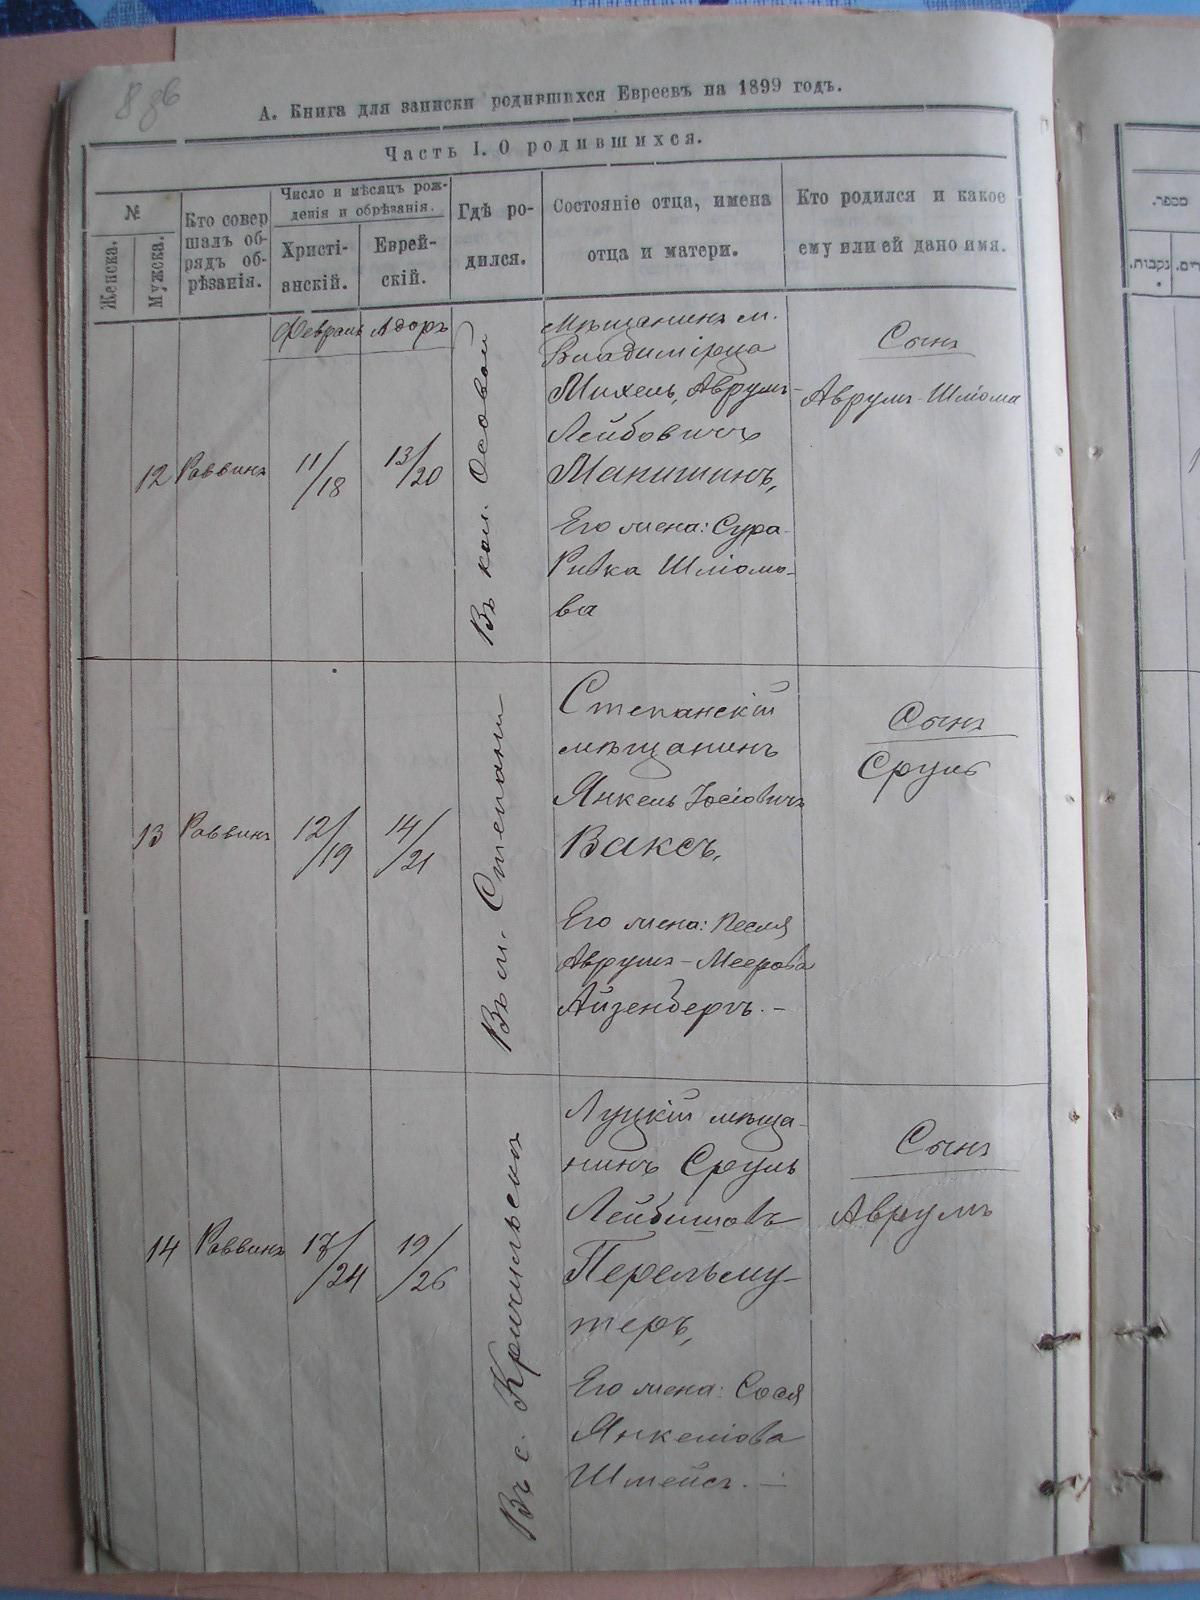 А. Книга для записки родившихся Евреевъ на 1899 годъ.
Часть I. О родившихся.
№
Женска.
Мужска.
Кто совер
шалъ об-
рядъ об-
рѣзанія.
Число и мѣсяцъ рож-
денія и обрѣзанія.
Христі-
анскій.
Еврей-
скій.
Гдѣ ро-
дился.
Состояніе отца, имена
отца и матери.
Кто родился и какое
ему или ей дано имя.
Февраль
Адоръ
12
Раввинъ
11/18
13/20
Въ кол. Осовой
Мѣщанинъ м.
Владимірца
Михель, Аврумъ-
Лейбовичъ
Манишинъ,
Его жена: Сура-
Ривка Шліомо-
ва
Сынъ
Аврумъ-Шліома
13
Раввинъ
12/19
14/21
Въ м. Степани
Степанскій
мѣщанинъ
Янкель Іосіовичъ
Ваксъ,
Его жена: Песля
Аврумъ-Меерова
Айзенбергъ.-
Сынъ
Сруль
14
Раввинъ
17/24
19/26
Въ с. Кричильскъ
Луцкій мѣща-
нинъ Сруль
Лейбишовъ
Перельму-
теръ,
Его жена: Сося
Янкеліова
Шмейсъ.-
Сынъ
Аврумъ
מספר.
נקבות.